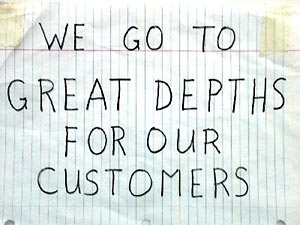 WE GO TO
GREAT DEPTHS
FOR OUR
CUSTOMERS